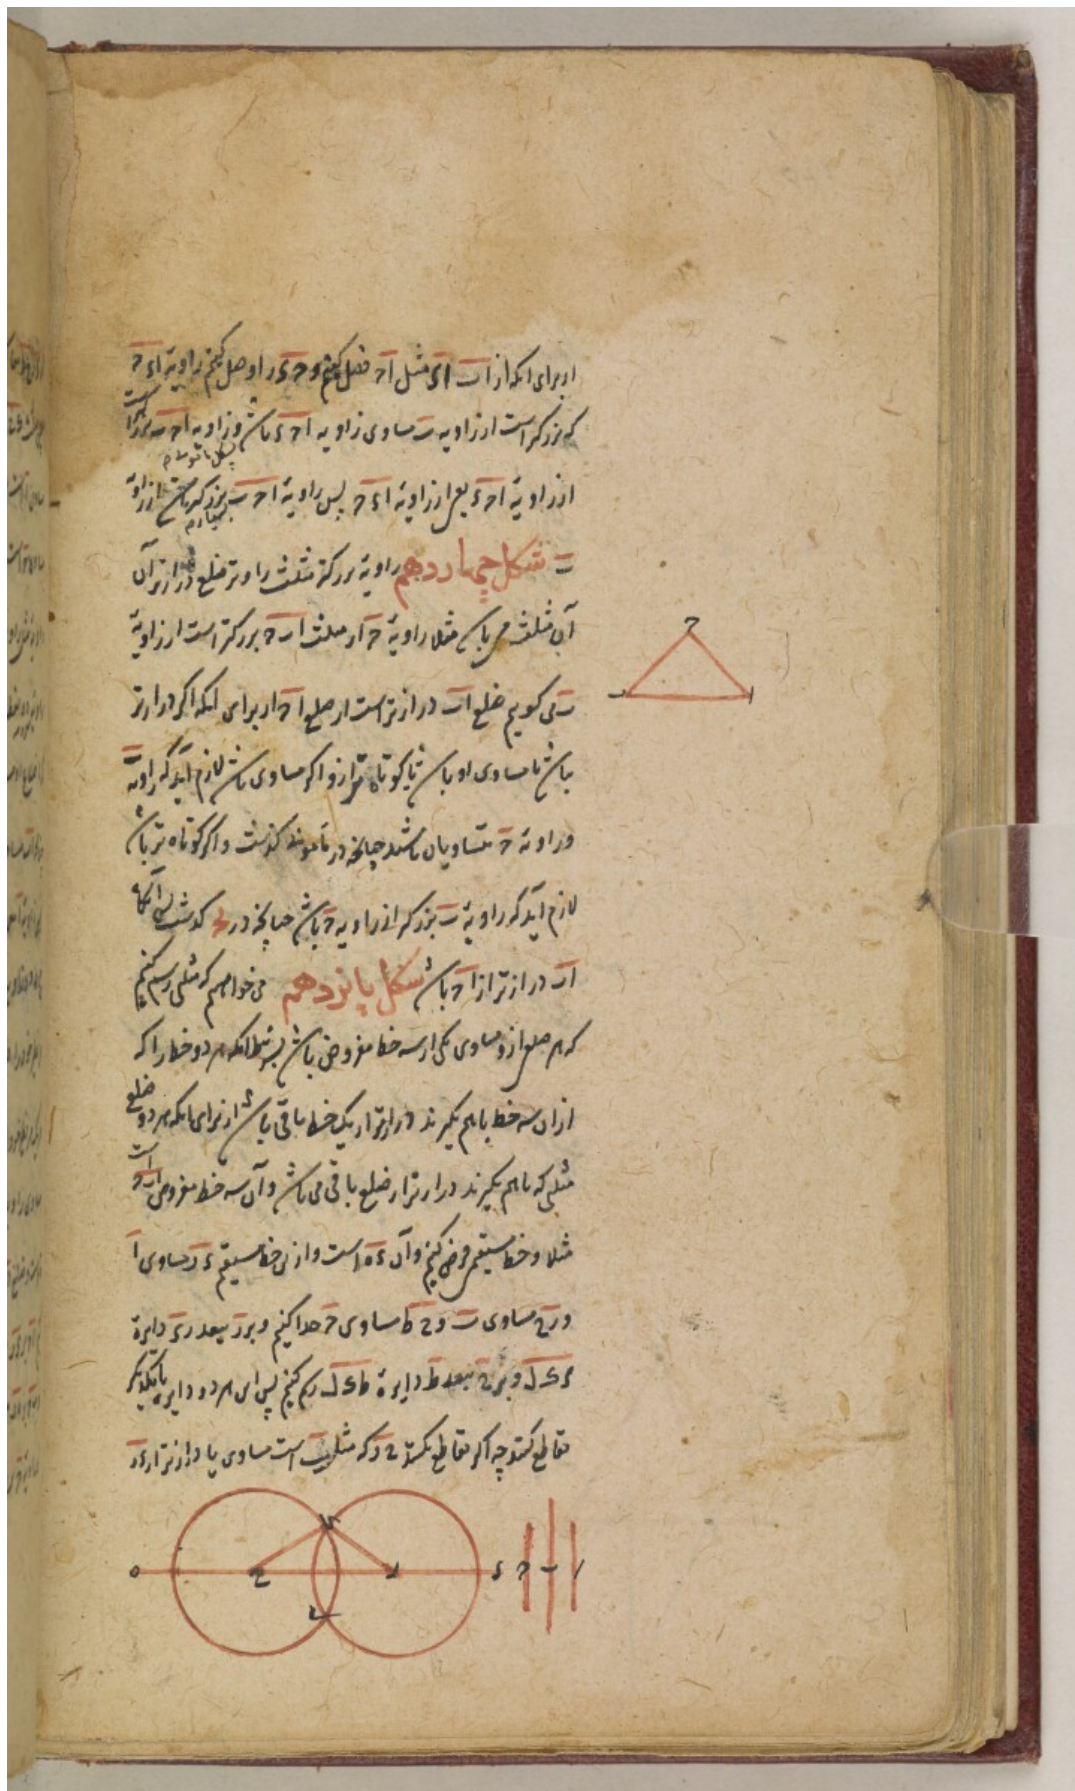 از برای آنکه از اب اء مثل اح فصل کنیم و حء را وصل کنیم زاویه اءح
که بزرگتر است از زاویه ب مساوی زاویه احء باشد و زاویه احب بزرگتر است
از زاویه احء یعنی از زاویه اءح پس زاویه احب بزرگتر باشد از زاویه
ب شکل چهاردهم زاویه بزرگتر مثلث را وتر ضلع درازتر آن
آن مثلث می باشد مثلا زاویه ح از مثلث ابح بزرگتر است از زاویه
ب می گویم ضلع اب درازتر است از ضلع اح از برای آنکه اگر درازتر
باشد یا مساوی او باشد یا کوتاه تر ازو اگر مساوی باشد لازم آید که زاویه ب
و زاویه ح متساویان باشند چنانچه در مامونی گذشت و اگر کوتاه تر باشد
لازم آید که زاویه ب بزرگتر از زاویه ح باشد چنانچه در گذشت پس آنگاه
اب درازتر از اح باشد شکل پانزدهم می خواهیم که مثلثی رسم کنیم
که هر ضلع ازو مساوی یکی از سه خط مفروض باشد بشرط آنکه هر دو خط را که
از ان سه خط باهم گیرند درازتر از یک خط باقی باشد از برای آنکه هر دو ضلع
مثلثی که باهم گیرند درازتر از ضلع باقی می باشد و آن سه خط مفروض ابح است
مثلا و خط مستقیم فرض کنیم و آن ءه است و ازین خط مستقیم ءر مساوی ا
و رح مساوی ب و ح ط مساوی ح جدا کنیم و بر ر ببعد رء دایره
ءکل و بر ح ببعد ط دایره طکل رسم کنیم پس این هر دو دایره بایکدیگر
تقاطع کنند چه اگر تقاطع نکنند ح ر که مثل ب است مساوی یا درازتر از ءر
ح
ب ا
ک
ه ح ر ء ح ب ا
ل